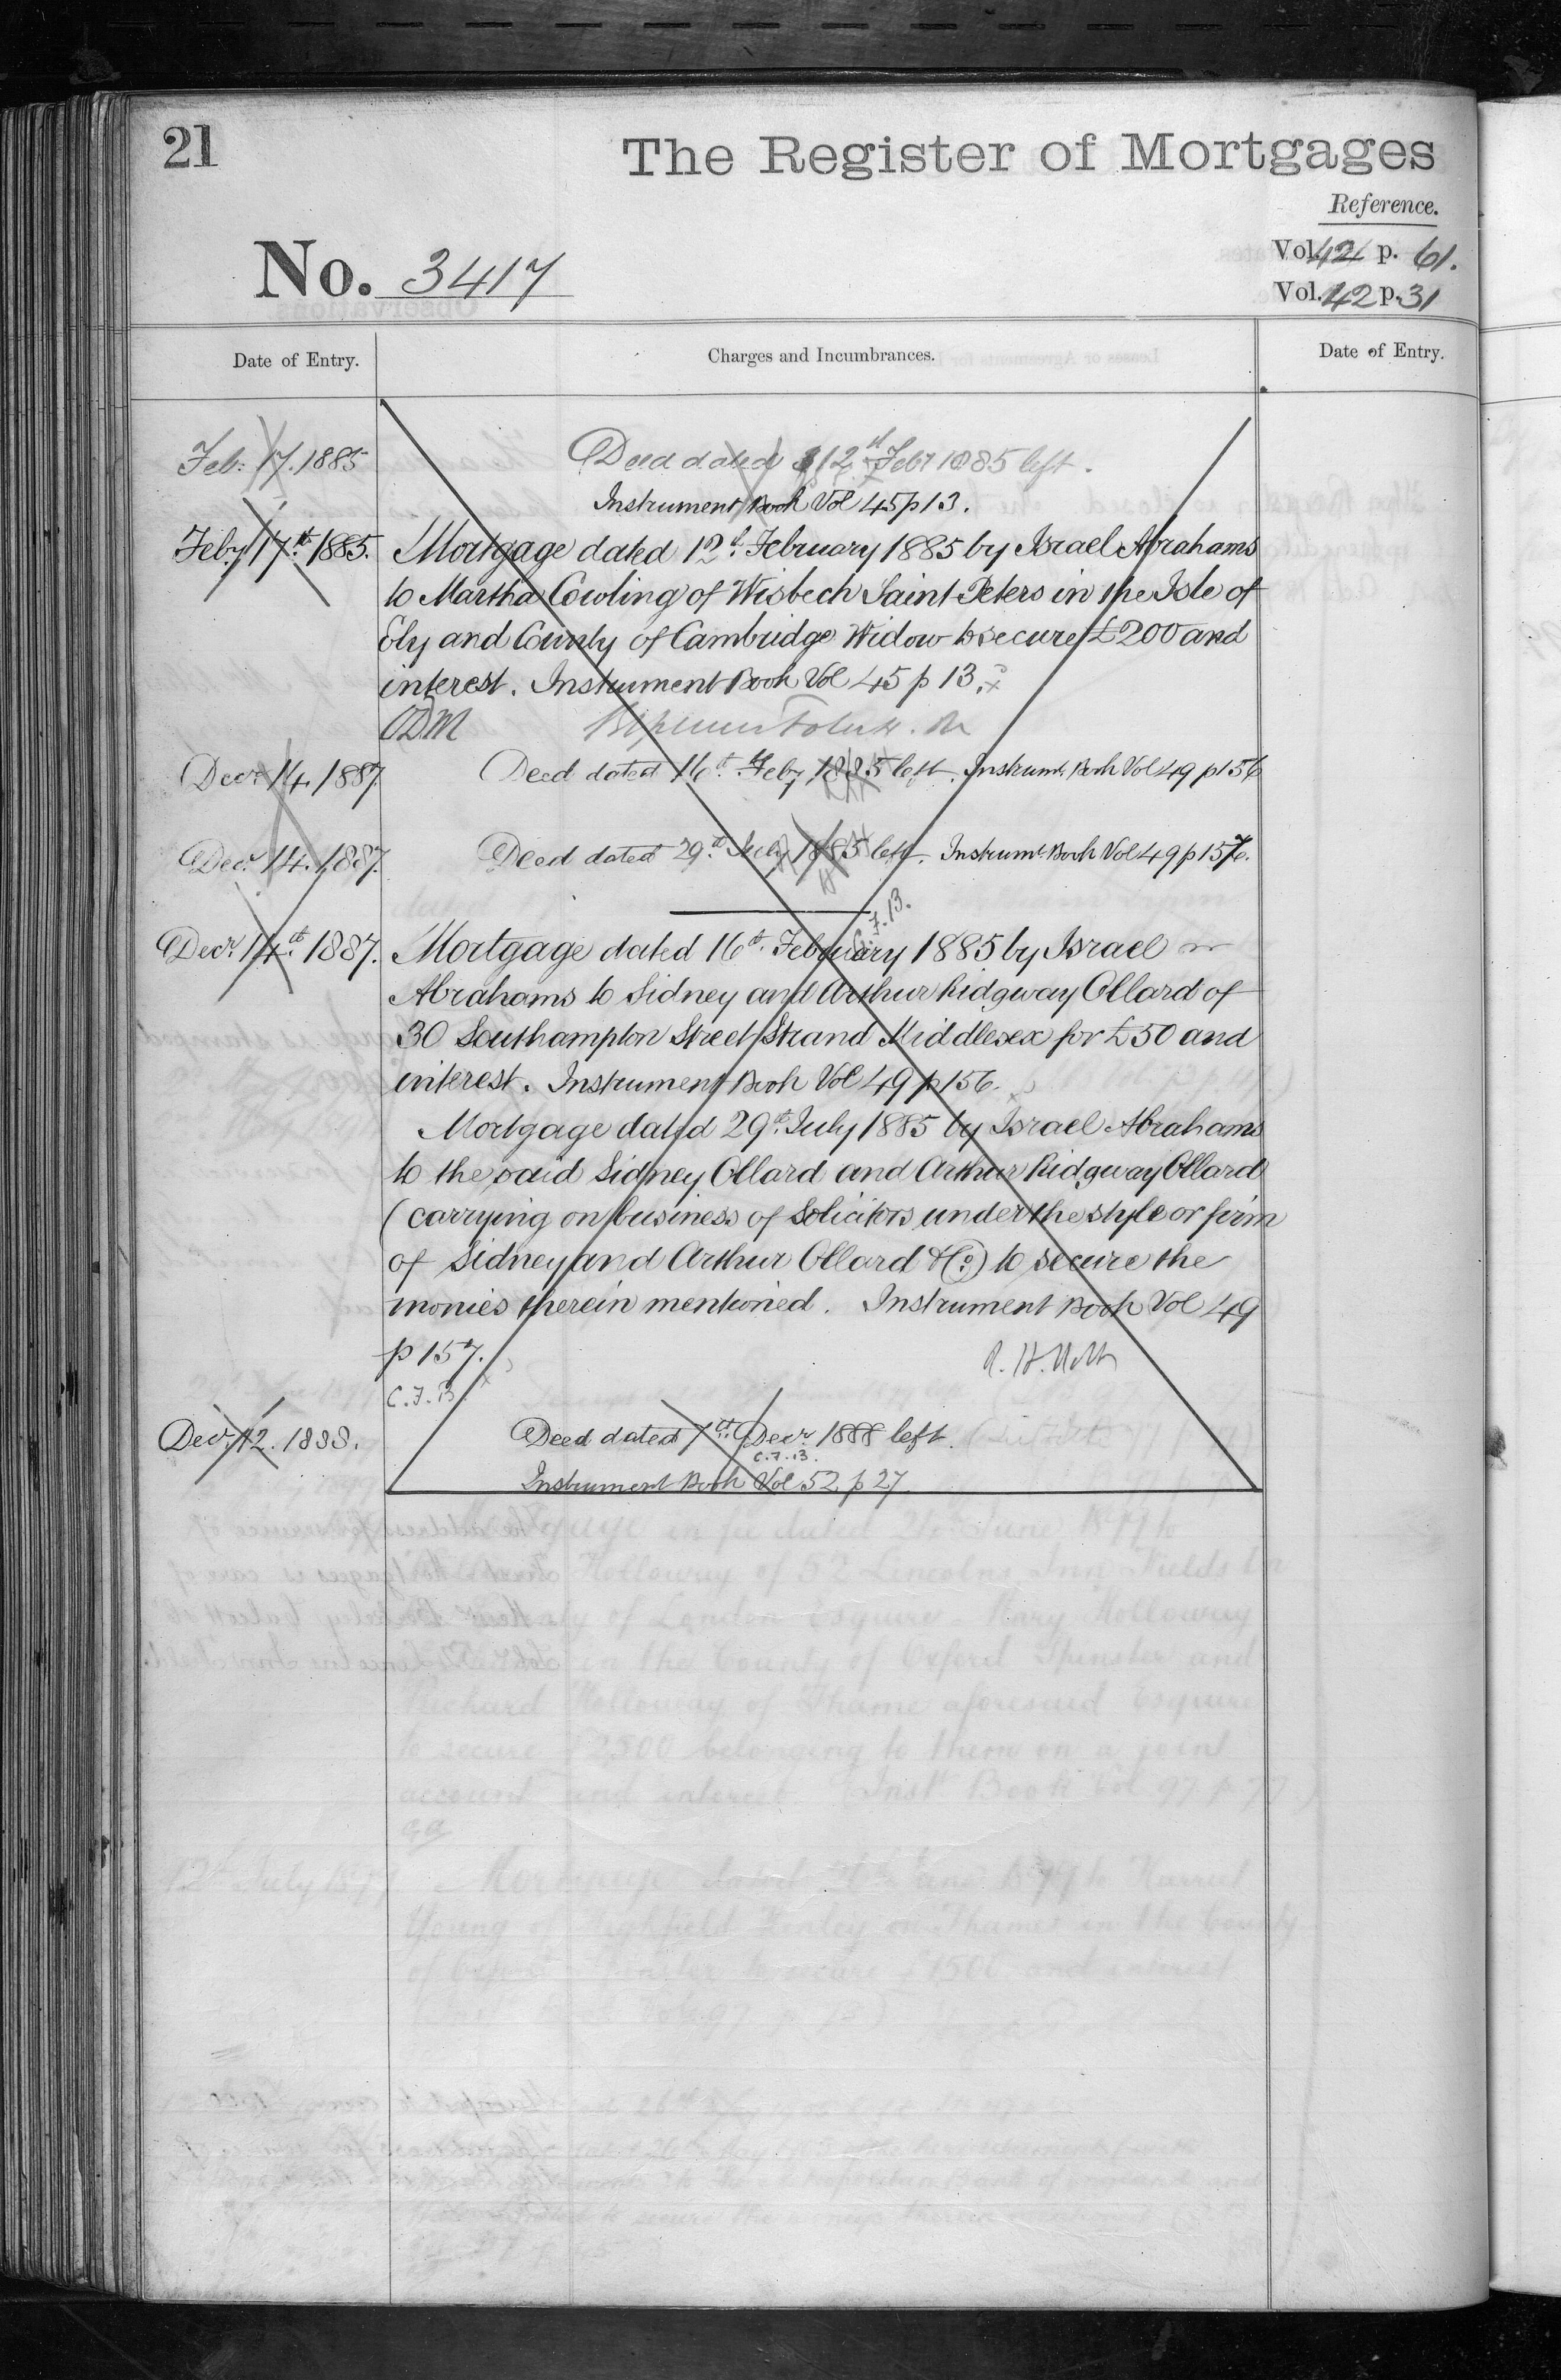 21
The Register of Mortgages
Reference.
No. 3417
Vol. 42 p. 61.
Vol. 42 p. 31
Date of Entry.
Charges and Incumbrances.
Date of Entry.
Feb: 17. 1885
Deed dated 12th Feby 1885 left.
Instrument Book Vol 45 p 13.
Feby 17th 1885.
Mortgage dated 12th February 1885 by Israel Abrahams
to Martha Cowling of Wisbech Saint Peters in the Isle of
Ely and County of Cambridge Widow to secure £200 and
interest. Instrument Book Vol 45 p 13.
Decr 14. 1887.
Deed dated 16th Feby 1885 left. Instrumt Book Vol 49 p 156
Decr 14. 1887.
Deed dated 29th July 1885 left. Instrumt Book Vol 49 p 157.
C.F.B.
Decr 14th 1887.
Mortgage dated 16th February 1885 by Israel
Abrahams to Sidney and Arthur Ridgway Ollard of
30 Southampton Street Strand Middlesex for £50 and
interest. Instrument Book Vol 49 p 156.
Mortgage dated 29th July 1885 by Israel Abrahams
to the said Sidney Ollard and Arthur Ridgway Ollard
(carrying on business of Solicitors under the style or firm
of Sidney and Arthur Ollard & Co) to secure the
monies therein mentioned. Instrument Book Vol 49
p 157.
C.F.B.
Decr 12. 1888.
Deed dated 7th Decr 1888 left.
C.F.B.
Instrument Book Vol 52 p 27